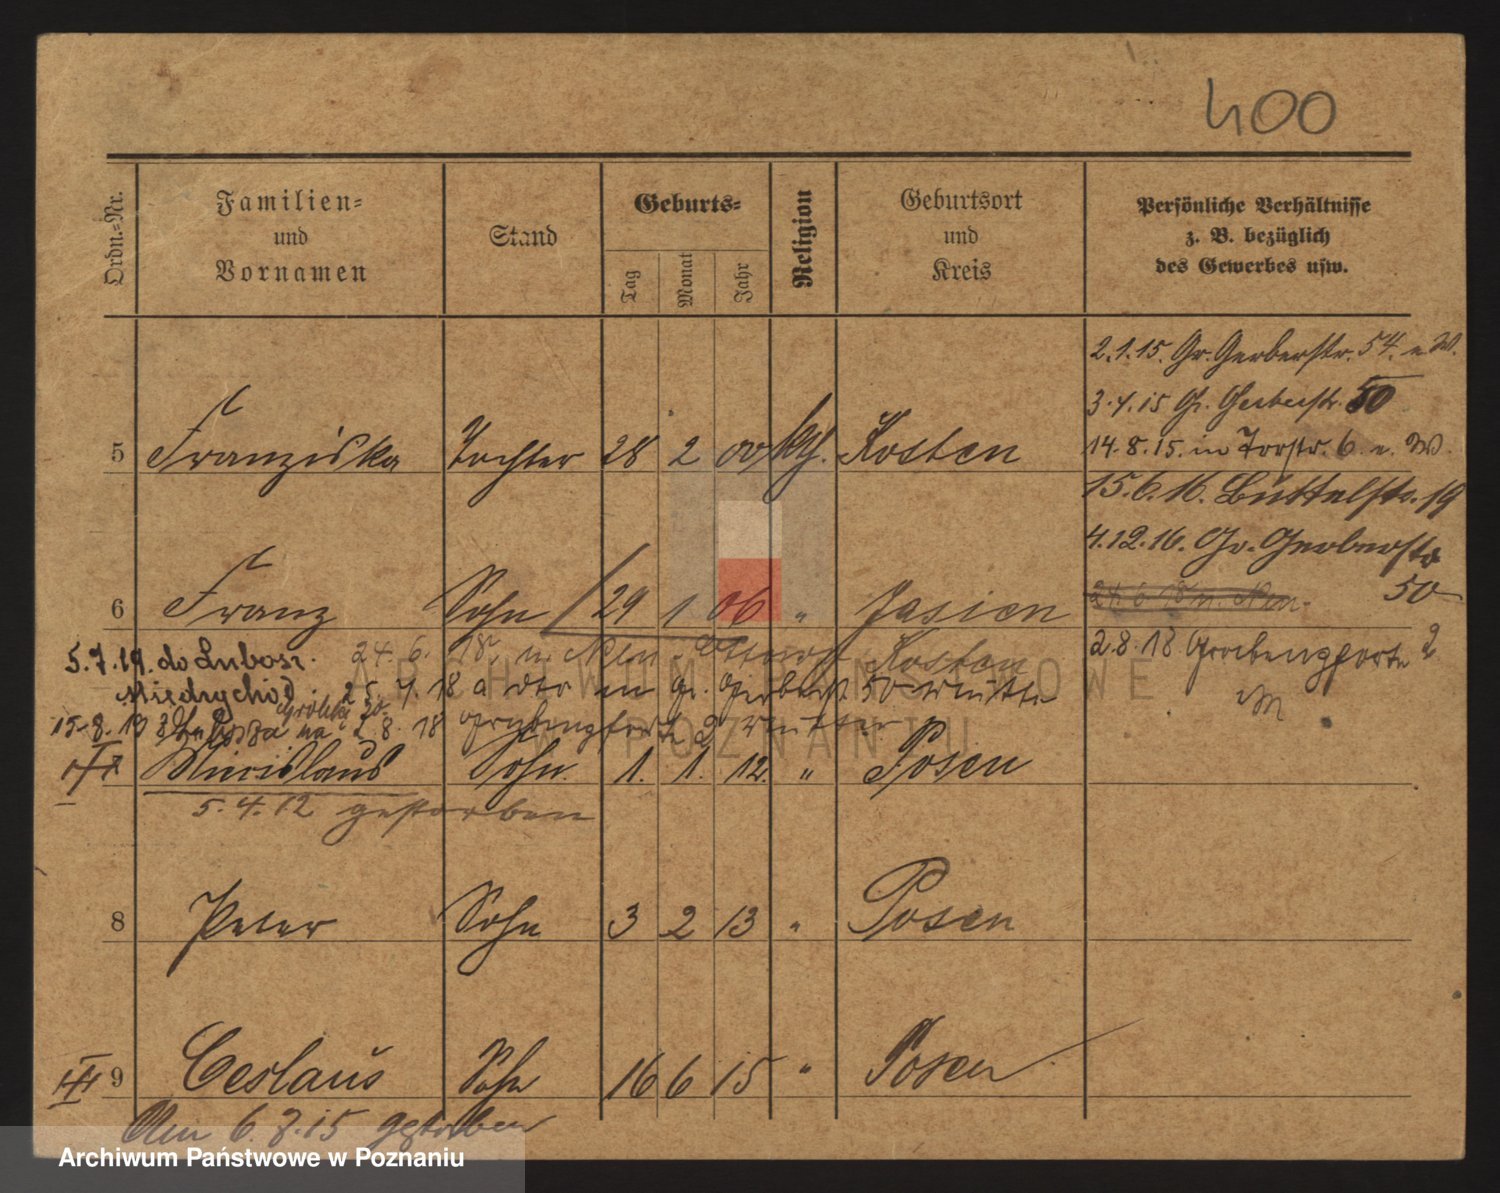 400
Ordn.-Nr.
Familien- und Vornamen
Stand
Geburts-
Tag
Monat
Jahr
Religion
Geburtsort und Kreis
Persönliche Verhältnisse
z. B. bezüglich
des Gewerbes usw.
2.1.15. Gr. Gerberstr. 54. e. W.
3.4.15 Gr. Gerberstr. 50
5 Franziska Tochter 28 2 00 kth. Kosten
14.8.15. in Torstr. 6. e. W.
15.6.16. Büttelstr. 19
4.12.16. Gr. Gerberstr
50
6 Franz Sohn 29 1 06 " Jasien
24.6.18 n.
2.8.18 Grabengforte 2
5.7.19. do Lubosz. 24.6.18. n. Kosten
Międzychód. 25.7.18 a in Gr. Gerberst. 50
15.8.19 2.8.18 Grabengforte 2
Sohn. 1. 1. 12. " Posen
5.4.12 gestorben
8 Peter Sohn 3 2 13 " Posen
9 Ceslaus Sohn 16 6 15 " Posen
Am 6.7.15 gestorben
ARCHIWUM PAŃSTWOWE
W POZNANIU
Archiwum Państwowe w Poznaniu